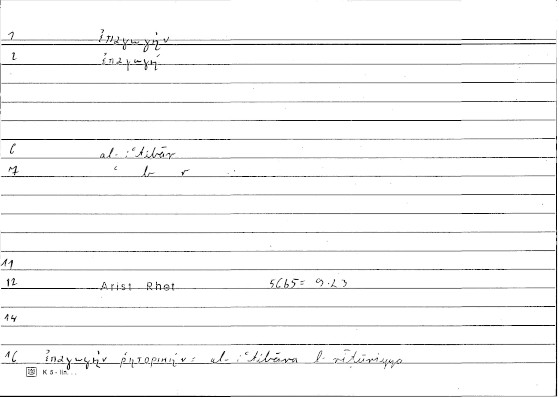 1 ἐπαγωγήν
2 ἐπαγωγή
6 al-iʿtibār
7 ʿ b r
11
12 Arist Rhet 56b5 = 9.23
14
16 ἐπαγωγὴν ῥητορικήν: al-iʿtibāra l-rīṭūrīyya
K 5 - lin.